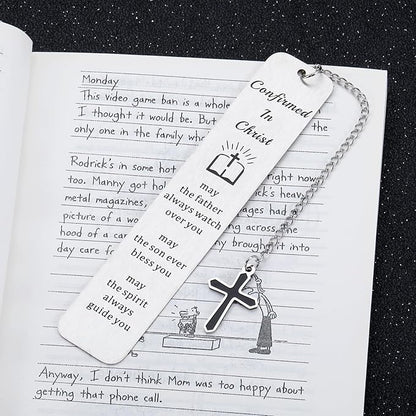 Monday
This video game ban is a whole
I thought it would be. But
only one in the family who
Rodrick's in some hot
right now
too. Manny got hol
's heavy
metal magazines,
ages had a
picture of a wo
ing across, the
hood of a car
y brought it into
day care fo
Anyway, I don't think Mom was too happy about
getting that phone call.
Confirmed
In
Christ
may
the father
always watch
over you
may
the son ever
bless you
may
the spirit
always
guide you